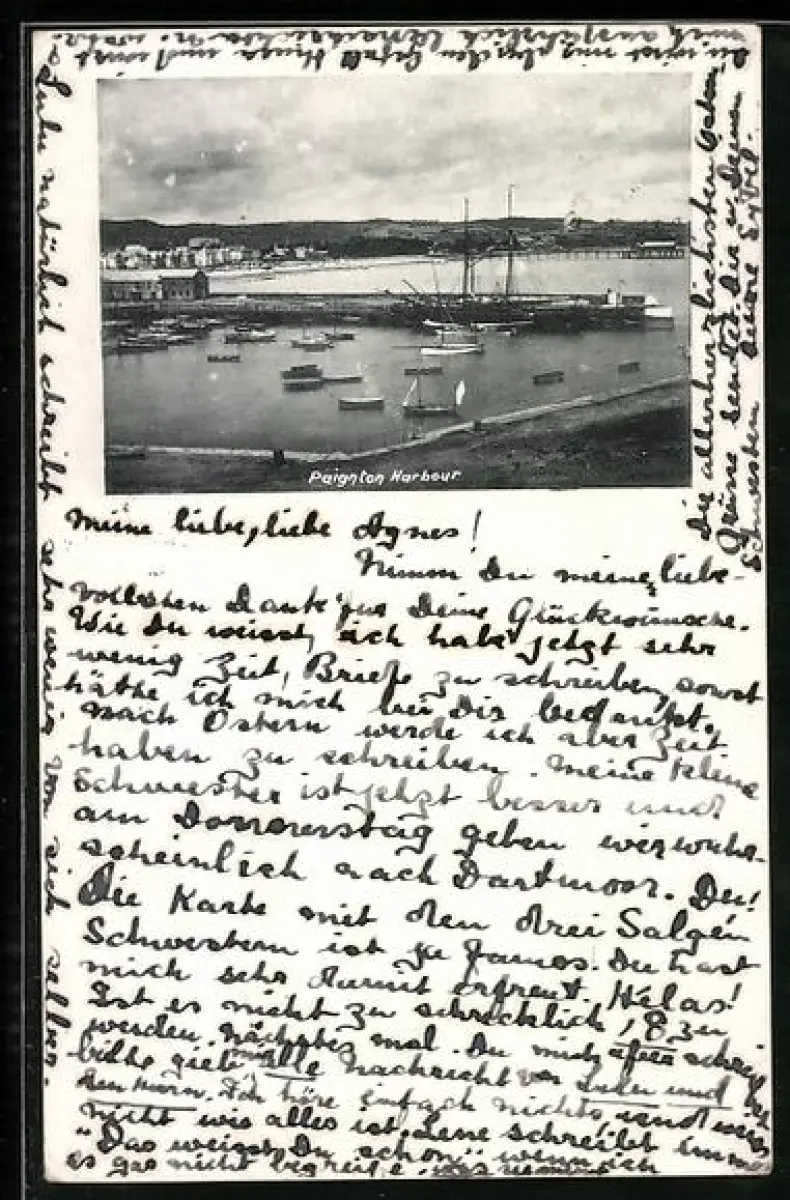 Paignton Harbour
Meine liebe, liebe Agnes!
Nimm Du meine liebe-
vollsten Dank für Deine Glückwünsche.
Wie Du weisst, ich habe jetzt sehr
wenig Zeit, Briefe zu schreiben, sonst
hätte ich mich bei Dir bedankt.
nach Ostern werde ich aber Zeit
haben zu schreiben. Meine kleine
Schwester ist jetzt besser und
am Donnerstag gehen wir wahr-
scheinlich nach Dartmoor. Du!
Die Karte mit den drei
Schwestern ist ja famos. Du hast
mich sehr damit erfreut. Hélas!
Ist es nicht zu schrecklich, 18 zu
werden. Nächstes mal. Du mich schreibst
bitte gieb mir alle Nachricht von und
Ich höre einfach nichts, und weiss
nicht wie alles ist. Lene schreibt immer
"Das weisst Du schon" wenn ich
es gar nicht begreife, was
natürlich schreibt sehr wenig von sich selber.
Du wirst mir und
mich ausführlich
Die allerherzlichsten
Grüsse sendet Dir u. Deinen
Schwestern Deine Sybel.